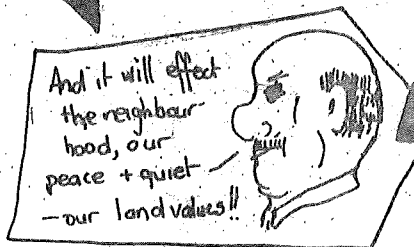 And it will effect
the neighbour
hood, our
peace + quiet
- our land values!!